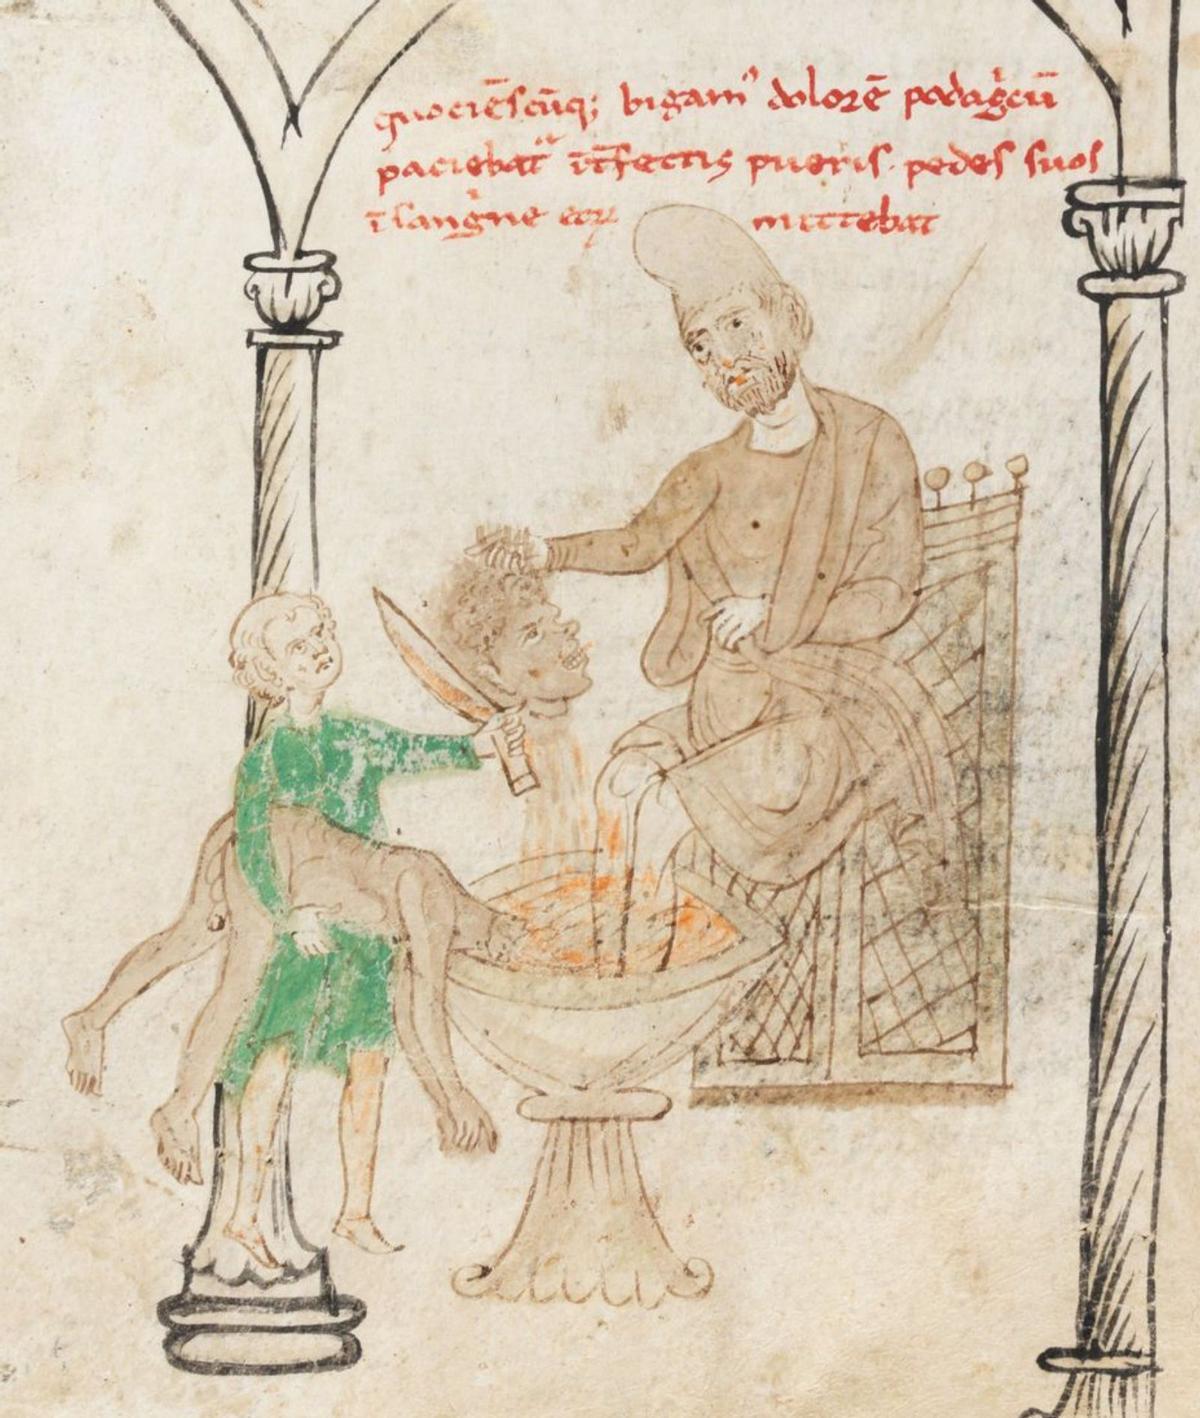 quociēscūq; bigamꝰ dolorē podagͥcū
paciebatᷓ īt̄fectis pueris. pedes suos
ī sangͥne eoꝝ mittebat